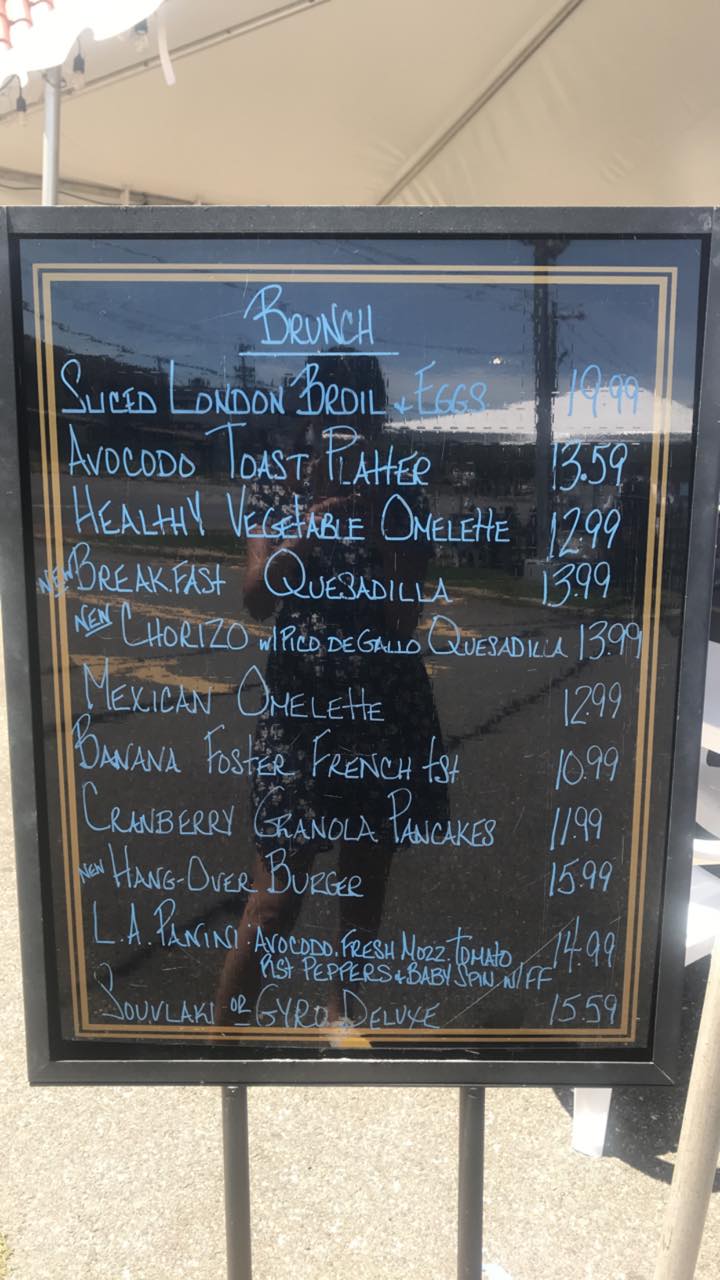 BRUNCH
SLICED LONDON BROIL & EGGS 19.99
AVOCODO TOAST PLATTER 13.59
HEALTHY VEGETABLE OMELETTE 12.99
NEW BREAKFAST QUESADILLA 13.99
NEW CHORIZO W/PICO DE GALLO QUESADILLA 13.99
MEXICAN OMELETTE 12.99
BANANA FOSTER FRENCH tst 10.99
CRANBERRY GRANOLA PANCAKES 11.99
NEW HANG-OVER BURGER 15.99
L.A. PANINI: AVOCODO. FRESH MOZZ. TOMATO 14.99
RST PEPPERS & BABY SPIN W/FF
SOUVLAKI OR GYRO DELUXE 15.59